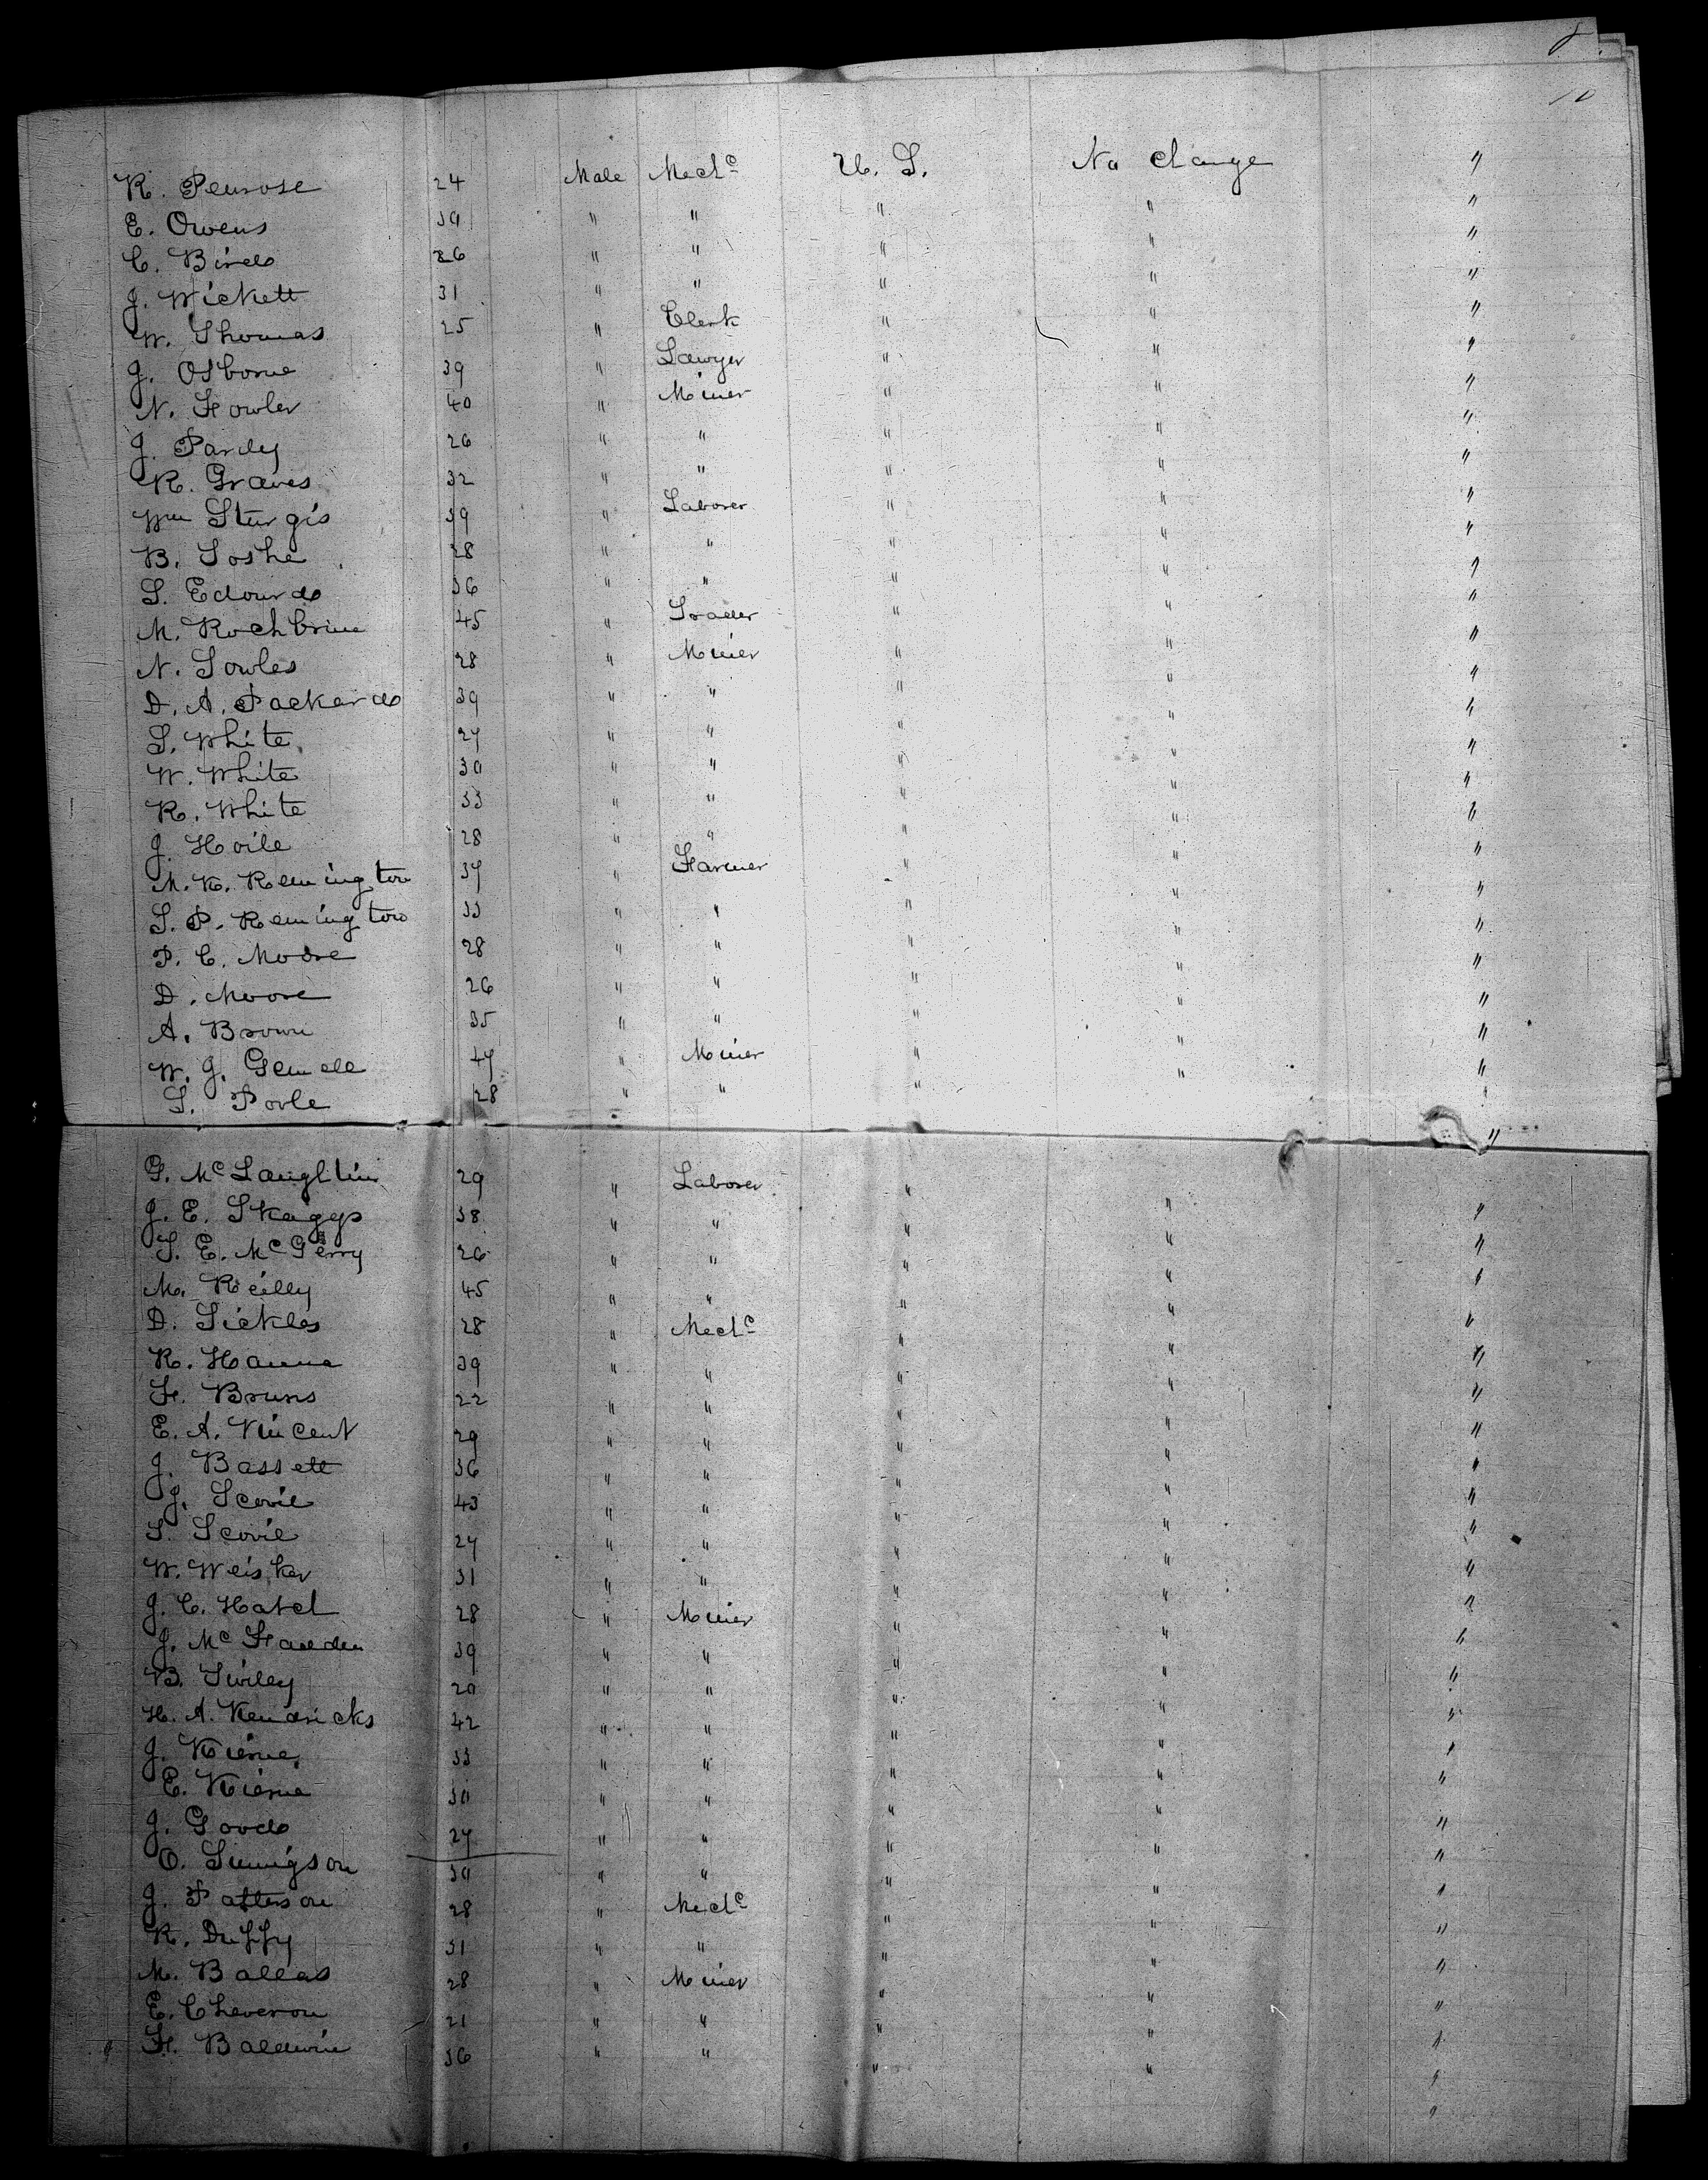 10
R. Penrose 24 Male Mech^c U. S. No change "
E. Owens 30 " " " " "
C. Bird 26 " " " " "
J. Wickett 31 " " " " "
W. Thomas 25 " Clerk " " "
J. Osborne 39 " Lawyer " " "
N. Fowler 40 " Miner " " "
J. Pardy 26 " " " " "
R. Graves 32 " " " " "
Wm Sturgis 39 " Laborer " " "
B. Toshe 28 " " " " "
S. Edwards 36 " " " " "
M. Rochbrine 45 " Trader " " "
N. Towles 28 " Miner " " "
D. A. Packard 39 " " " " "
S. White 27 " " " " "
W. White 30 " " " " "
R. White 33 " " " " "
J. Hoile 28 " " " " "
M. R. Remington 37 " Farmer " " "
S. P. Remington 33 " " " " "
P. C. Moore 28 " " " " "
D. Moore 26 " " " " "
A. Brown 35 " " " " "
W. J. Gemell 47 " Miner " " "
S. Poole 28 " " " " "
G. McLaughlin 29 " Laborer " " "
J. E. Skaggs 38 " " " " "
S. E. McGerry 26 " " " " "
M. Reilly 45 " " " " "
D. Sickles 28 " Mech^c " " "
R. Hanna 39 " " " " "
F. Bruns 22 " " " " "
E. A. Vincent 29 " " " " "
J. Bassett 36 " " " " "
J. Scovil 43 " " " " "
S. Scovil 27 " " " " "
W. Weisker 31 " " " " "
J. C. Hatch 28 " Miner " " "
J. McFadden 39 " " " " "
B. Tuiley 20 " " " " "
H. A. Kendricks 42 " " " " "
J. Kierne 33 " " " " "
E. Kierne 30 " " " " "
J. Good 27 " " " " "
O. Simigson 30 " " " " "
J. Patterson 28 " Mech^c " " "
R. Duffy 31 " " " " "
M. Ballas 28 " Miner " " "
E. Cheveron 21 " " " " "
F. Baldwin 36 " " " " "